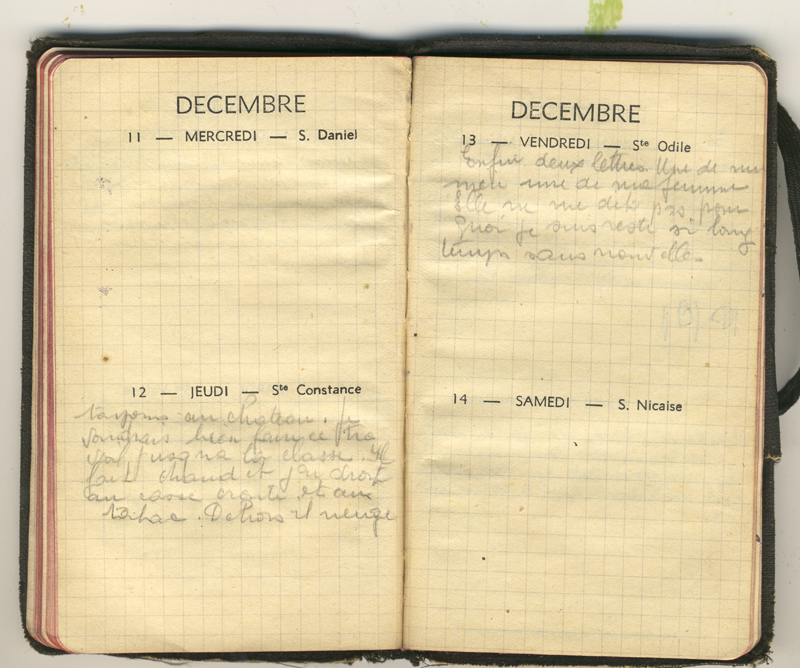 DECEMBRE
11 — MERCREDI — S. Daniel
12 — JEUDI — Ste Constance
toujours au chateau. Je
voudrais bien faire ce tra
vail jusqu'a la classe. Il
fait chaud et j'ai droit
au casse croute et au
tabac. Dehors il neige
DECEMBRE
13 — VENDREDI — Ste Odile
Enfin deux lettres. Une de
une de ma femme
Elle ne me dit pas pour
quoi je suis reste si long
temps sans nouvelles
14 — SAMEDI — S. Nicaise